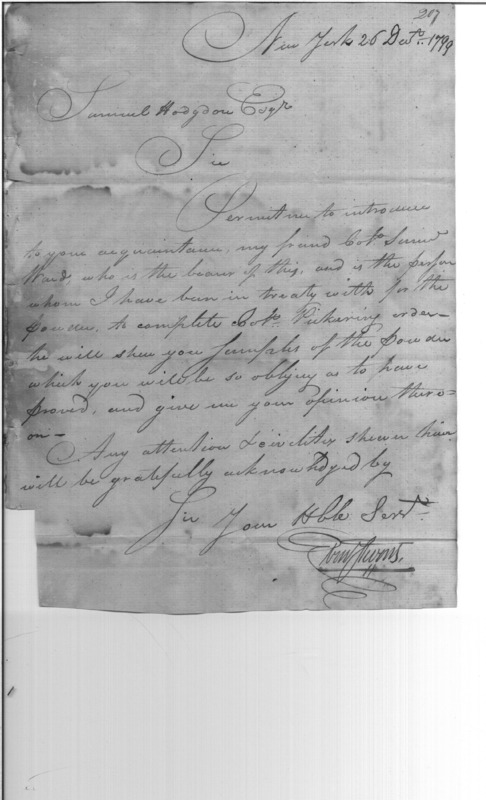 207
New York 26 Decr. 1799
Samuel Hodgdon Esqr
Sir
Permit me to introduce
to your acquaintance, my friend Colo. Saml
Ward, who is the bearer of this, and is the person
whom I have been in treaty with for the
powder, to complete Colo. Pickering order—
he will shew you samples of the powder
which you will be so obliging as to have
proved, and give me your opinion there-
on—
Any attention & civility shewn him
will be gratefully acknowledged by
Sir Your Hble Servt.
Stevens.